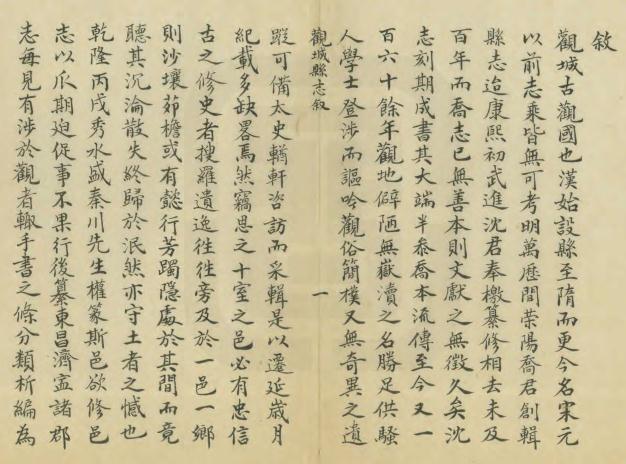 敘
觀城古觀國也漢始設縣至隋而更今名宋元
以前志乘皆無可考明萬歷間榮陽喬君創輯
縣志迨康熙初武進沈君奉檄纂修相去未及
百年而喬志已無善本則文獻之無徵久矣沈
志刻期成書其大端半叅喬本流傳至今又一
百六十餘年觀地僻陋無嶽瀆之名勝足供騷
人學士登涉而謳吟觀俗簡樸又無奇異之遺
觀城縣志叙
一
蹤可備太史輶軒咨訪而采輯是以遷延歲月
紀載多缺畧焉然竊思之十室之邑必有忠信
古之修史者搜羅遺逸徃徃旁及於一邑一鄉
則沙壤茆檐或有懿行芳躅隱處於其間而竟
聽其沉淪散失終歸於泯然亦守土者之憾也
乾隆丙戌秀水盛秦川先生權篆斯邑欲修邑
志以爪期迫促事不果行後纂東昌濟寧諸郡
志每見有涉於觀者輙手書之條分類析編為